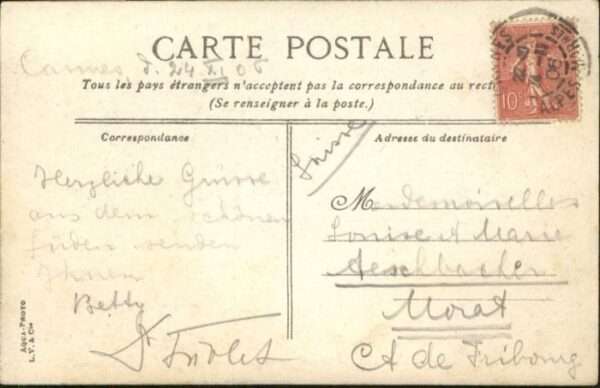 CARTE POSTALE
Cannes, d. 24 XI 06
Tous les pays étrangers n'acceptent pas la correspondance au recto
(Se renseigner à la poste.)
10
ALPES
Correspondance
Adresse du destinataire
Suisse
Herzliche Grüsse
aus dem schönen
Süden senden
Ihnen
Betty
Mesdemoiselles
Louise & Marie
Aeschbacher
Morat
Ct de Fribourg
AQUA-PHOTO
L.V. & Cie